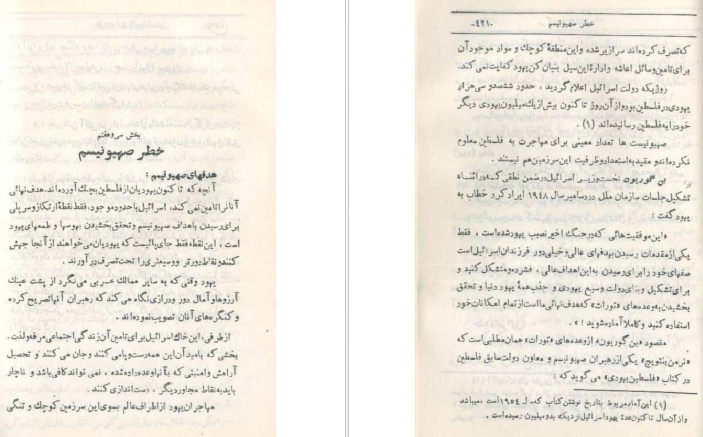 بخش سی و هفتم
خطر صهیونیسم
هدفهای صهیونیسم :
آنچه که تا کنون یهودیان از فلسطین بچنگ آورده‌اند، هدف نهائی
آنانرا تامین نمی کند، اسرائیل با حدود موجود، فقط نقطهٔ ارتکاز و سرپلی
برای رسیدن باهداف صهیونیسم و تحقق بخشیدن بهوسها و طمعهای یهود
است ، این نقطه فقط جای پائیست که یهودیان می خواهند از آنجا جهش
کنند و نقاط دورتر و وسیعتری را تحت تصرف در آورند .
یهود وقتی که به سایر ممالک عربی می نگرد از پشت عینک
آرزوها و آمال دور و درازی نگاه می کند که رهبران آنها تصریح کرده
و کنگره های آنان تصویب نموده‌اند .
از طرفی ، این خاک اسرائیل برای تامین آن زندگی اجتماعی مرفه و لذت
بخشی که بامید آن این همه دست و پا می کنند و جان می کنند و تحصیل
آرامش و امنیتی که بآنها وعده داده شده ، نمی تواند کافی باشد و ناچار
باید به نقاط مجاور دیگر ، دست اندازی کنند .
مهاجران یهود از اطراف عالم بسوی این سرزمین کوچک و تنگی
خطر صهیونیسم
-۴۲۱-
که تصرف کرده‌اند سرازیر شده و این منطقهٔ کوچک و مواد موجود آن
برای تامین وسائل اعاشه و ادارهٔ این سیل بنیان کن یهود کفایت نمی کند.
روزیکه دولت اسرائیل اعلام گردید ، حدود ششصد و سی هزار
یهودی در فلسطین بود و از آن روز تا کنون بیش از یک میلیون یهودی دیگر
خود را به فلسطین رسانیده‌اند (۱) .
صهیونیست ها تعداد معینی برای مهاجرت به فلسطین معلوم
نکرده‌اند و مقید به استعداد و ظرفیت این سرزمین هم نیستند .
بن گوریون نخست وزیر اسرائیل در ضمن نطقی که در اثناء
تشکیل جلسات سازمان ملل در دسامبر سال ۱۹۴۸ ایراد کرد خطاب به
یهود گفت :
«این موفقیت‌هائی که در جنگ اخیر نصیب یهود شده است ، فقط
یکی از مقدمات رسیدن بهدفهای عالی و خیلی دور فرزندان اسرائیل است
صفهای خود را برای رسیدن به این اهداف عالی ، فشرده و متشکل کنید و
برای تشکیل و بنای دولت وسیع یهودی و جذب همهٔ یهود دنیا و تحقق
بخشیدن به وعده های «تورات» که هدف نهائی ما است از تمام امکانات خود
استفاده کنید و کاملا آماده شوید !» .
مقصود «بن گوریون» از وعده های «تورات» همان مطلبی است که
«نرمن بنتویچ» یکی از رهبران صهیونیسم و معاون دولت سابق فلسطین
در کتاب «فلسطین یهودی» می گوید که :
(۱) این آمار مربوط بتاریخ نوشتن کتاب که سال ۱۹۵۴ است ، میباشد
و از آن سال تا کنون عدهٔ یهود اسرائیل نزدیک به دو میلیون رسیده است .